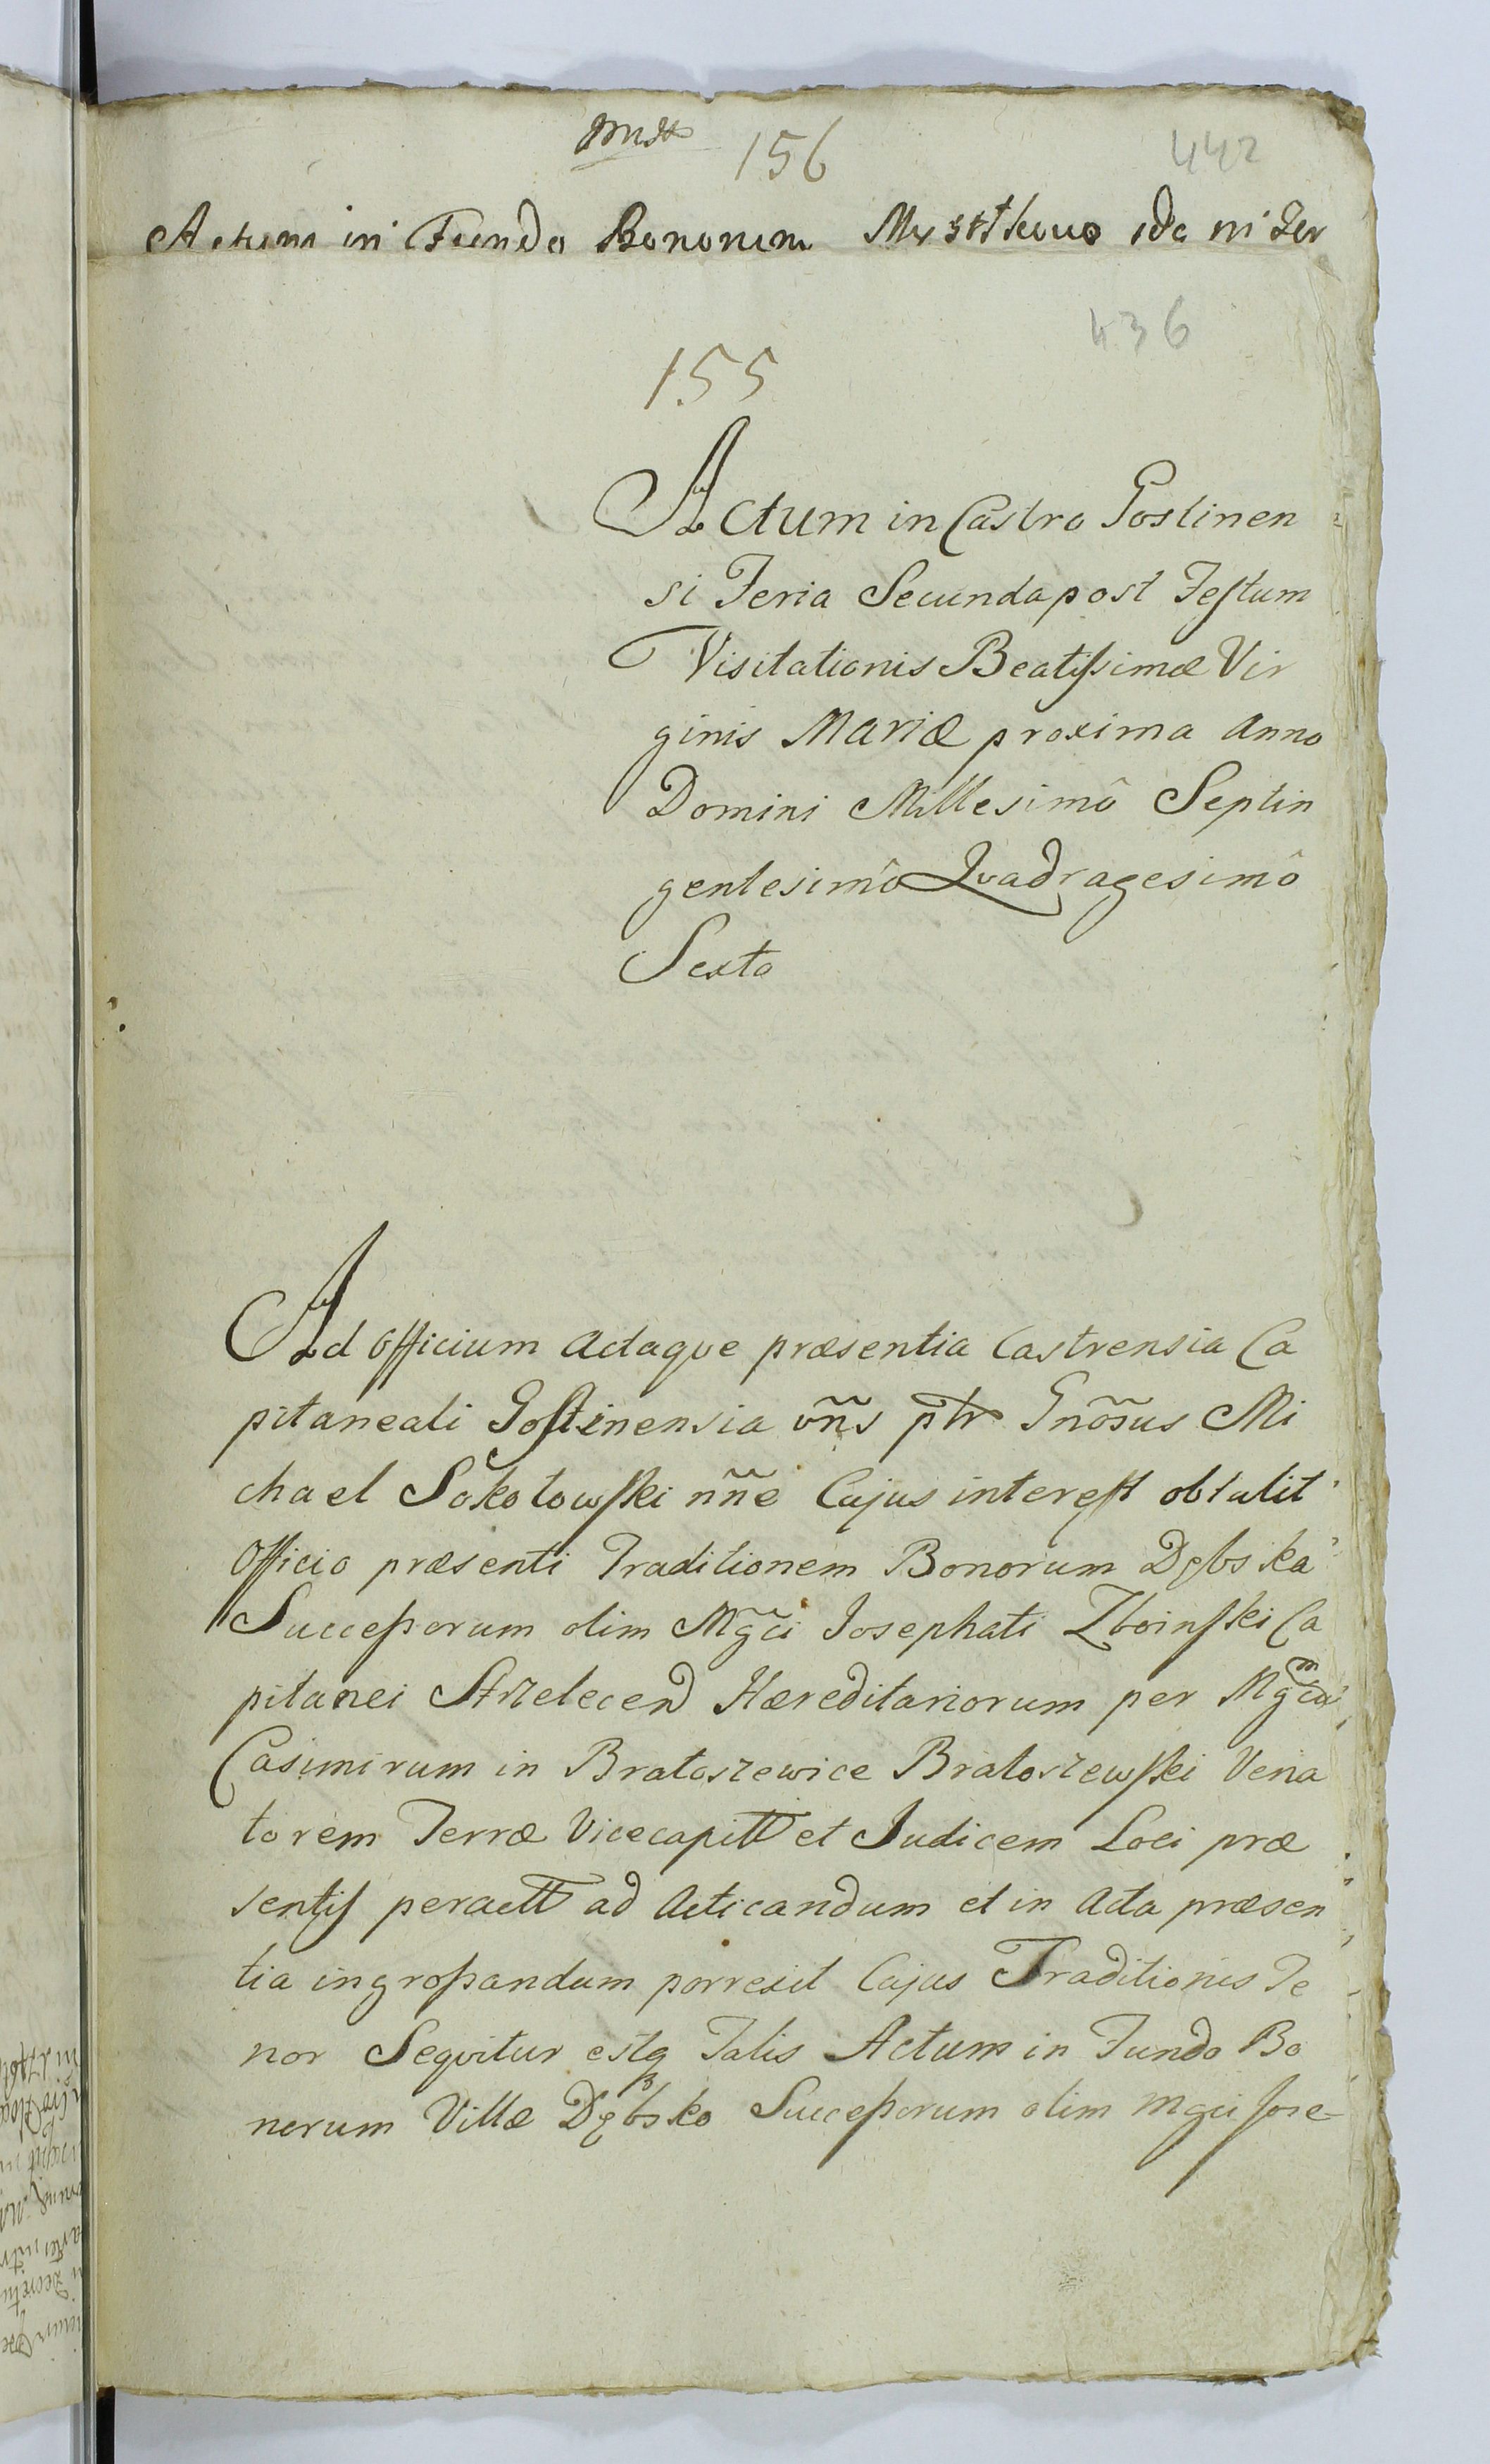 156
442
Actum in Fundo Bonorum
436
155
Actum in Castro Gostinen
si Feria Secunda post Festum
Visitationis Beatissimæ Vir
ginis Mariæ proxima Anno
Domini Millesimô Septin
gentesimô Qvadragesimô
Sexto
Ad Officium Actaqve præsentia Castrensia Ca
pitaneali Gostinensia vñs ptr Gnõsus Mi
chael Sokołowski nñe Cujus interest obtulit
Officio præsenti Traditionem Bonorum Dębska
Successorum olim Mg̃ci Josephati Zboinski Ca
pitanei Strzelecen Hæreditariorum per Mgcum
Casimirum in Bratoszewice Bratoszewski Vena
torem Terræ Vicecapitt et Judicem Loci præ
sentis peractt ad Acticandum et in Acta præsen
tia ingrossandum porrexit Cujus Traditionis Te
nor Seqvitur estq Talis Actum in Fundo Bo
norum Villæ Dębsko Successorum olim Mgci Jose=